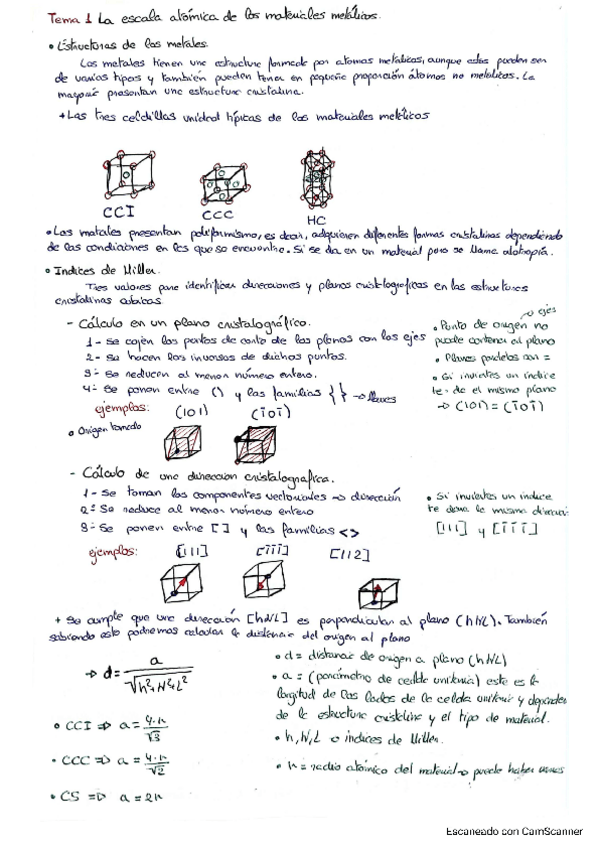 Tema 1 La escala atómica de los materiales metálicos.
• Estructuras de los metales.
Los metales tienen una estructura formada por átomos metálicos, aunque estos pueden ser
de varios tipos y también pueden tener en pequeña proporción átomos no metálicos. La
mayoría presentan una estructura cristalina.
+ Las tres celdillas unidad típicas de los materiales metálicos
CCI
CCC
HC
• Los metales presentan polimorfismo, es decir, adquieren diferentes formas cristalinas dependiendo
de las condiciones en las que se encuentre. Si se da en un material puro se llama alotropía.
• Indices de Miller.
Tres valores para identificar direcciones y planos cristalográficos en las estructuras
cristalinas cúbicas.
- Cálculo en un plano cristalográfico.
1- Se cogen los puntos de corte de los planos con los ejes
2- Se hacen los inversos de dichos puntos.
3- Se reducen al menor número entero.
4- Se ponen entre () y las familias { } → llaves
ejes
• Punto de origen no
puede contener al plano
• Planos paralelos son =
• Si inviertes un índice
te da el mismo plano
⇒ (101) = (1̄01̄)
ejemplos: (101) (1̄01̄)
• Origen tomado
- Cálculo de una dirección cristalográfica.
1- Se toman las componentes vectoriales ⇒ dirección
2- Se reduce al menor número entero
3- Se ponen entre [] y las familias <>
• Si inviertes un índice
te da la misma direcci
[111] y [1̄1̄1̄]
ejemplos: [111] [1̄1̄1̄] [112]
+ Se cumple que una dirección [hkl] es perpendicular al plano (hkl). También
sabiendo esto podremos calcular la distancia del origen al plano
⇒ d = a / √(h²+k²+L²)
• d = distancia de origen a plano (hkl)
• a = (parámetro de celda unitaria) este es la
longitud de los lados de la celda unitaria y depende
de la estructura cristalina y el tipo de material.
• h, k, L o índices de Miller.
• r = radio atómico del material → puede haber
• CCI ⇒ a = 4·r / √3
• CCC ⇒ a = 4·r / √2
• CS ⇒ a = 2r
Escaneado con CamScanner